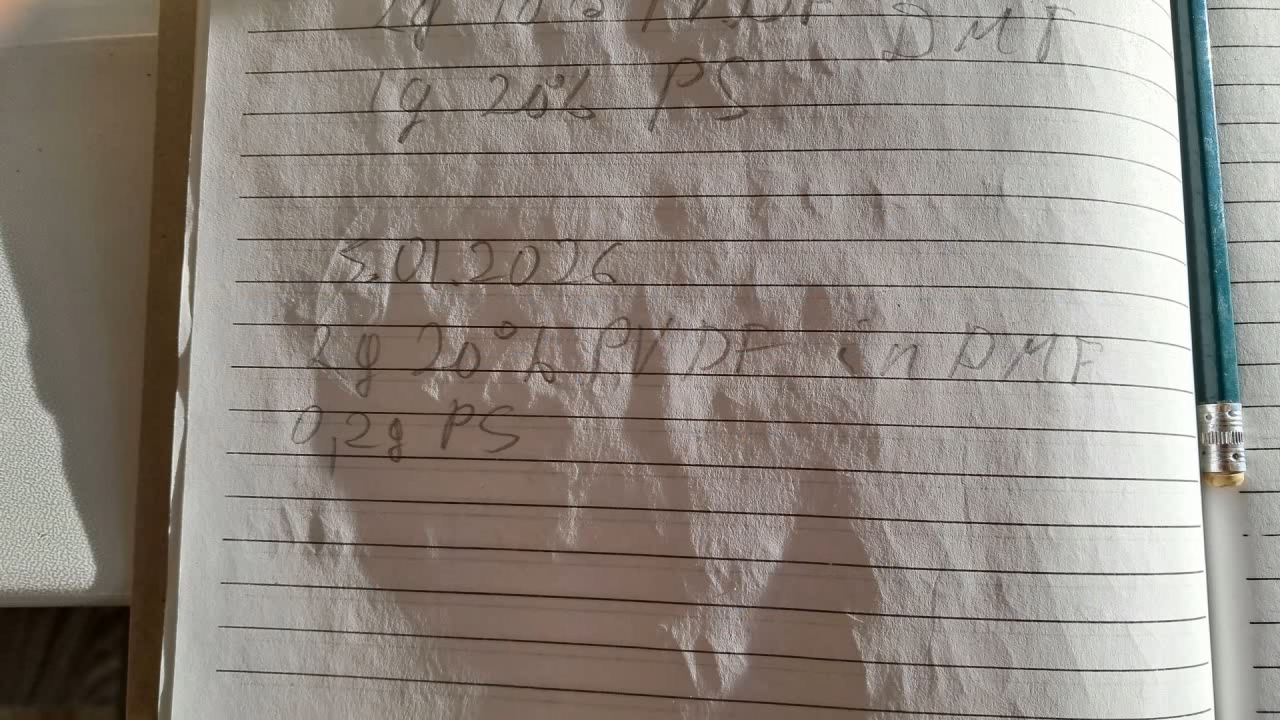 2g 10% PVDF DMF
1g 20% PS
5.01.2026
2g 20% PVDF in DMF
0,2g PS